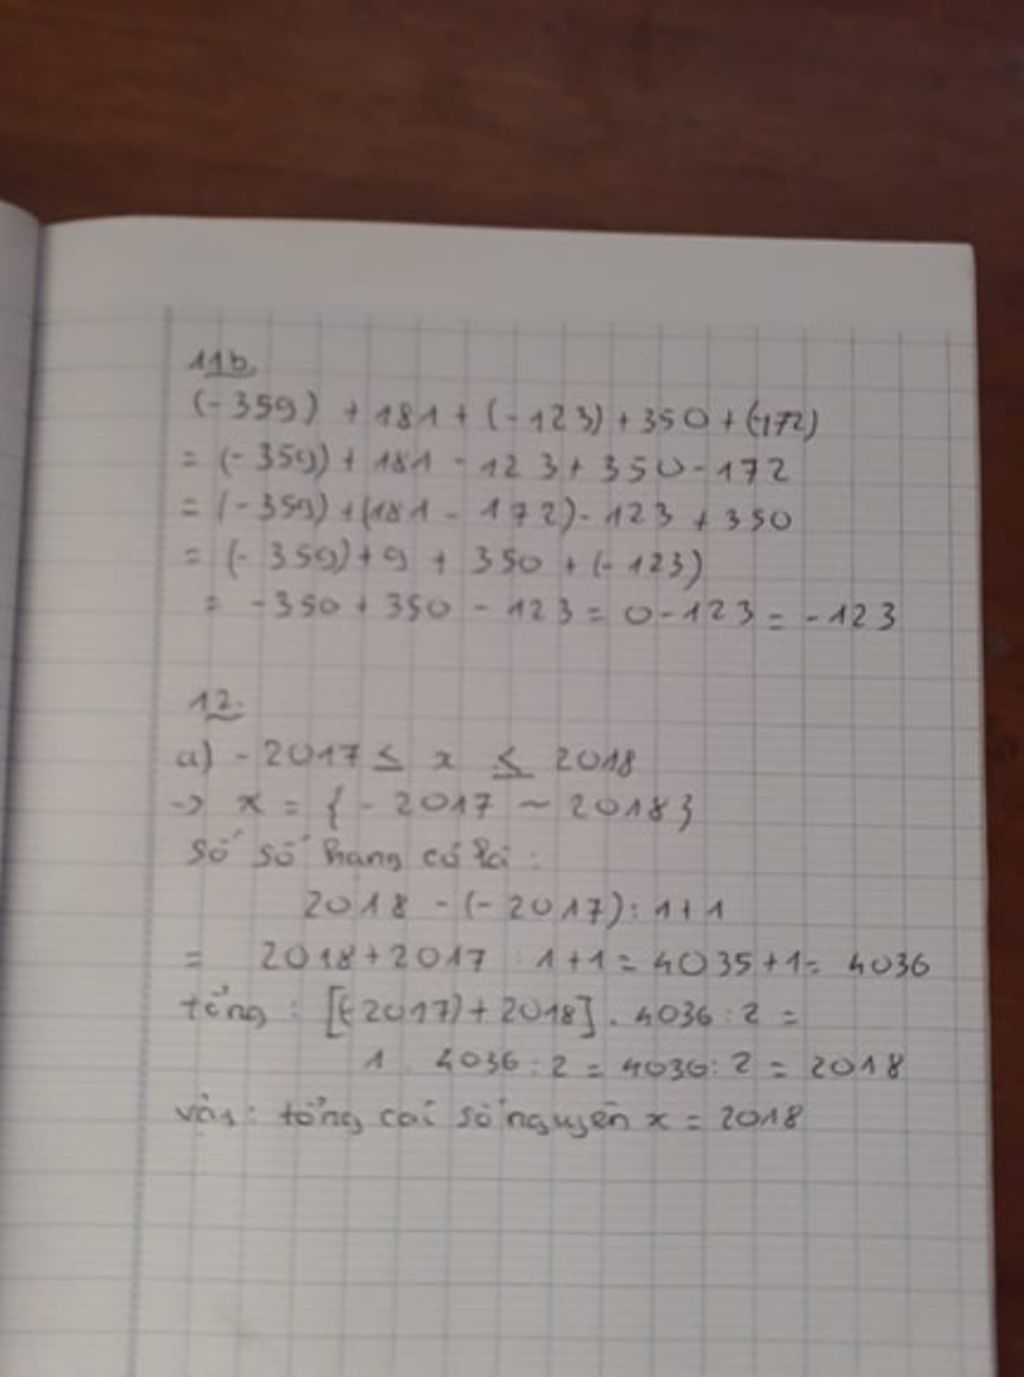 11b.
(-359) + 181 + (-123) + 350 + (-172)
= (-359) + 181 - 123 + 350 - 172
= (-359) + (181 - 172) - 123 + 350
= (-359) + 9 + 350 + (-123)
= -350 + 350 - 123 = 0 - 123 = -123
12.
a) -2017 ≤ x ≤ 2018
-> x = {-2017 ~ 2018}
Số số hạng có là :
2018 - (-2017) : 1+1
= 2018 + 2017 : 1+1 = 4035+1 = 4036
tổng : [(-2017) + 2018] . 4036 : 2 =
1 . 4036 : 2 = 4036 : 2 = 2018
vậy : tổng các số nguyên x = 2018